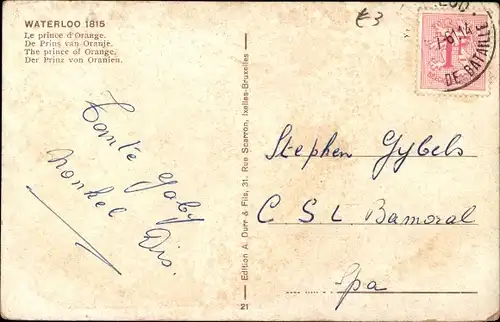 WATERLOO 1815
Le prince d'Orange.
De Prins van Oranje.
The prince of Orange.
Der Prinz von Oranien.
£3
DE BATAILLE
Tante Gaby
nonkel Dis.
Edition A. Durr & Fils, 31, Rue Scarron, Ixelles-Bruxelles
21
Stephen Gybels
C S L Bamoral
Spa